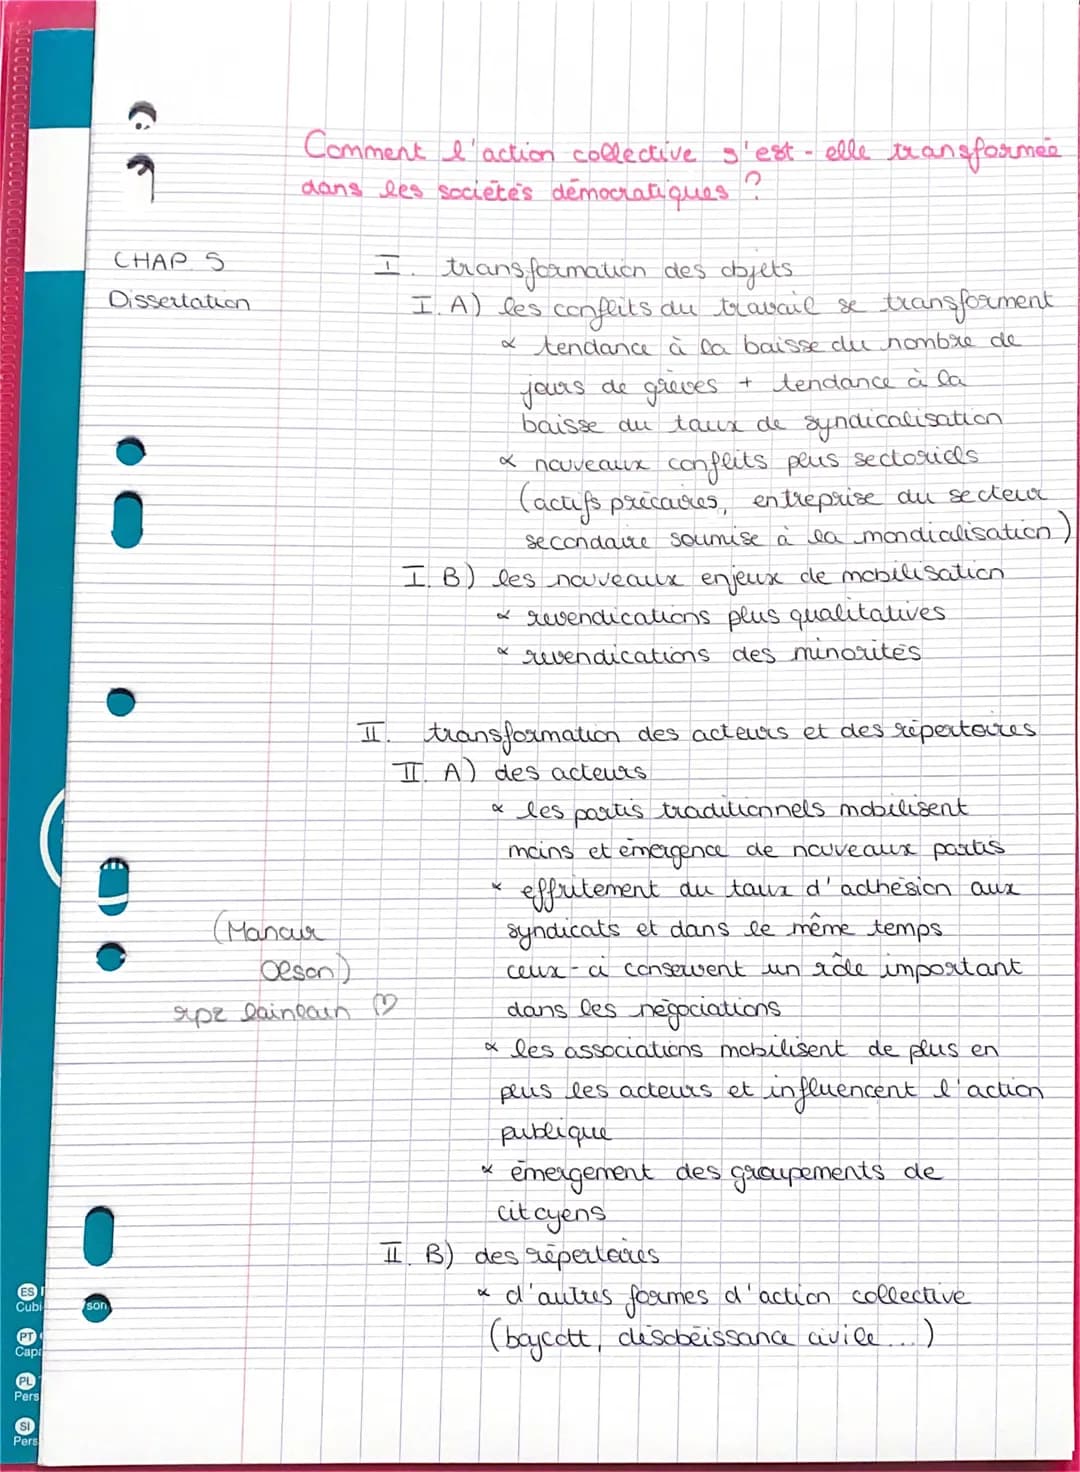 Comment l'action collective s'est-elle transformée
dans les sociétés démocratiques ?
CHAP 5
Dissertation
I. transformation des objets
I. A) les conflits du travail se transforment
∝ tendance à la baisse du nombre de
jours de grèves + tendance à la
baisse du taux de syndicalisation
∝ nouveaux conflits plus sectoriels
(actifs précaires, entreprise du secteur
secondaire soumise à la mondialisation)
I. B) les nouveaux enjeux de mobilisation
∝ revendications plus qualitatives
∝ revendications des minorités
II. transformation des acteurs et des répertoires
II. A) des acteurs
∝ les partis traditionnels mobilisent
moins et émergence de nouveaux partis
∝ effritement du taux d'adhésion aux
syndicats et dans le même temps
ceux-ci conservent un rôle important
dans les négociations
(Mancur
Olson)
rpz lainlain ♡
∝ les associations mobilisent de plus en
plus les acteurs et influencent l'action
publique
∝ émergement des groupements de
citoyens
II. B) des répertoires
∝ d'autres formes d'action collective
(boycott, désobéissance civile...)
ES
Cubi
son
PT
Capa
PL
Pers
SI
Pers